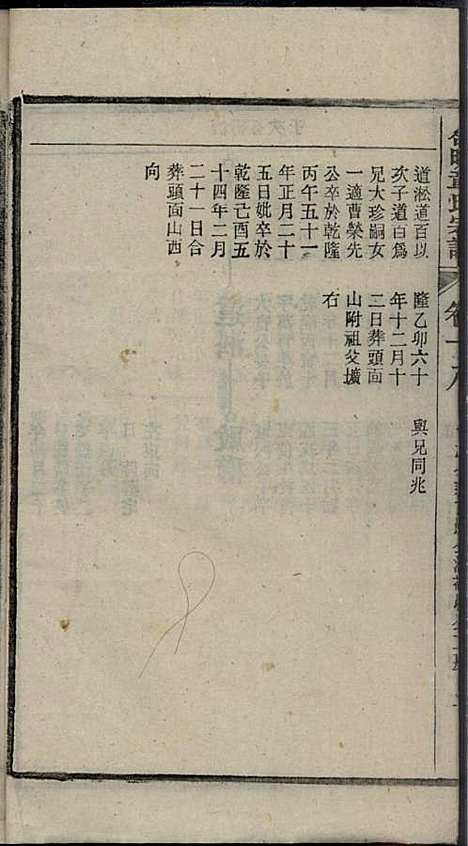 道淞道百以
次子道白為
兄大珍嗣女
一適曹榮先
公卒於乾隆
丙午五十一
年正月二十
五日妣卒於
乾隆己酉五
十四年二月
二十一日合
葬頭面山西
向
隆乙卯六十
年十二月十
二日葬頭面
山附祖父壙
右
與兄同兆
章氏宗譜
卷十八